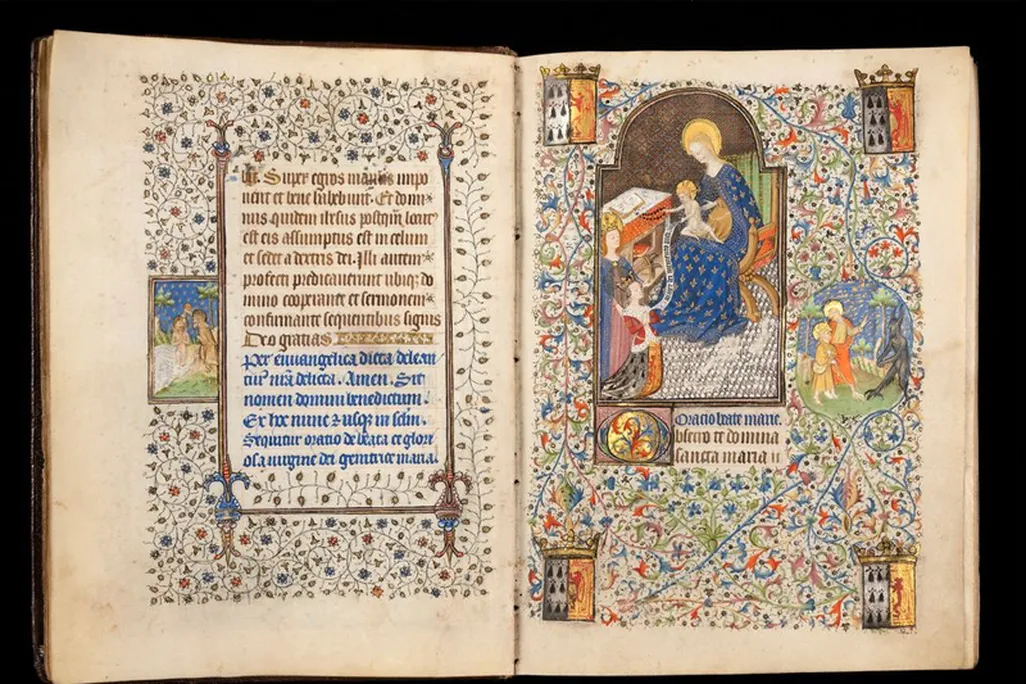 Super egros manus impo
nent et bene habebunt. Et domi
nus quidem ihesus postquam locut9
est eis assumptus est in celum
et sedet a dextris dei. Illi autem
profecti predicauerunt ubiqz do
mino cooperante et sermonem
confirmante sequentibus signis
Deo gratias
Per euuangelica dicta delean
tur nrā delicta. Amen. Sit
nomen domini benedictum.
Ex hoc nunc z usqz in sclm.
Sequitur oratio de beata et glori
osa uirgine dei genitrice maria.
Oratio beate marie.
bsecro te domina
sancta maria